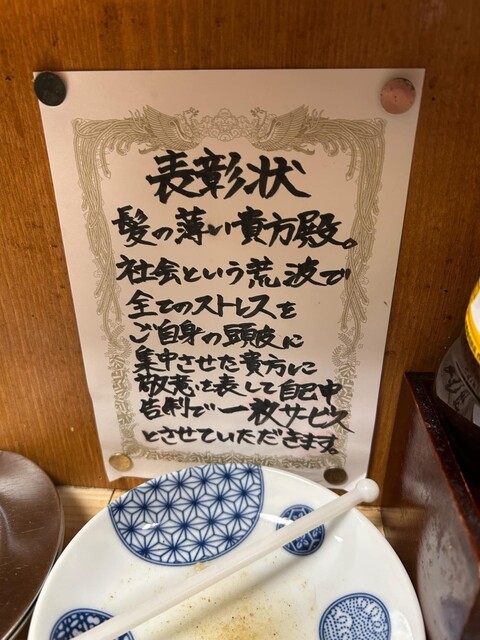 表彰状
髪の薄い貴方殿。
社会という荒波で
全てのストレスを
ご自身の頭皮に
集中させた貴方に
敬意を表して自己申
告制で一枚サービス
とさせていただきます。